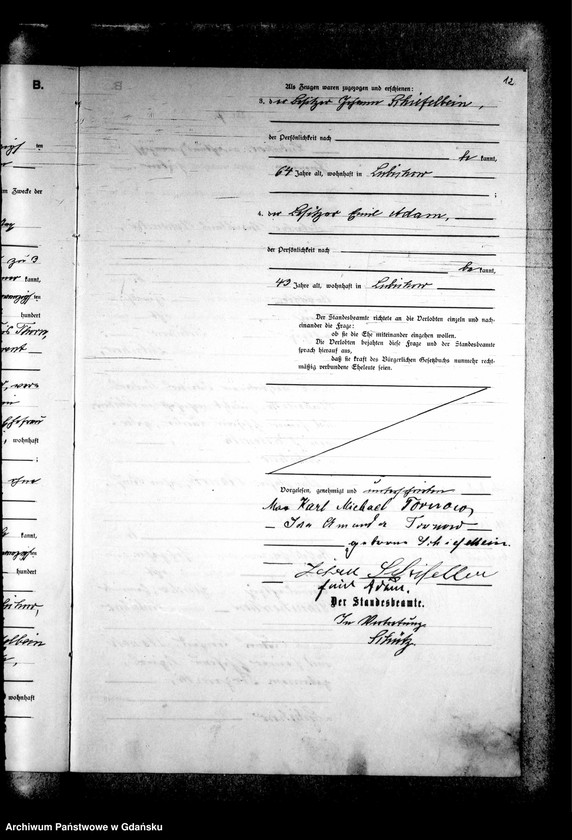 B.
12
Als Zeugen waren zugezogen und erschienen:
3. der Besitzer Johann Schiefelbein,
der Persönlichkeit nach
be kannt,
64 Jahre alt, wohnhaft in Lubichow
;
4. der Besitzer Emil Adam,
der Persönlichkeit nach
be kannt,
43 Jahre alt, wohnhaft in Lubichow
Der Standesbeamte richtete an die Verlobten einzeln und nach-
einander die Frage:
ob sie die Ehe miteinander eingehen wollen.
Die Verlobten bejahten diese Frage und der Standesbeamte
sprach hierauf aus,
daß sie kraft des Bürgerlichen Gesetzbuchs nunmehr recht-
mäßig verbundene Eheleute seien.
Vorgelesen, genehmigt und unterschrieben
Max Karl Michael Tornow
Ida Amanda Tornow
geborene Schiefelbein.
Johann Schiefelbein
Emil Adam.
Der Standesbeamte.
In Vertretung
Schütz
zum Zwecke der
kannt,
hundert
Thorn,
Ehefrau
wohnhaft
;
kannt,
hundert
wohnhaft
Archiwum Państwowe w Gdańsku